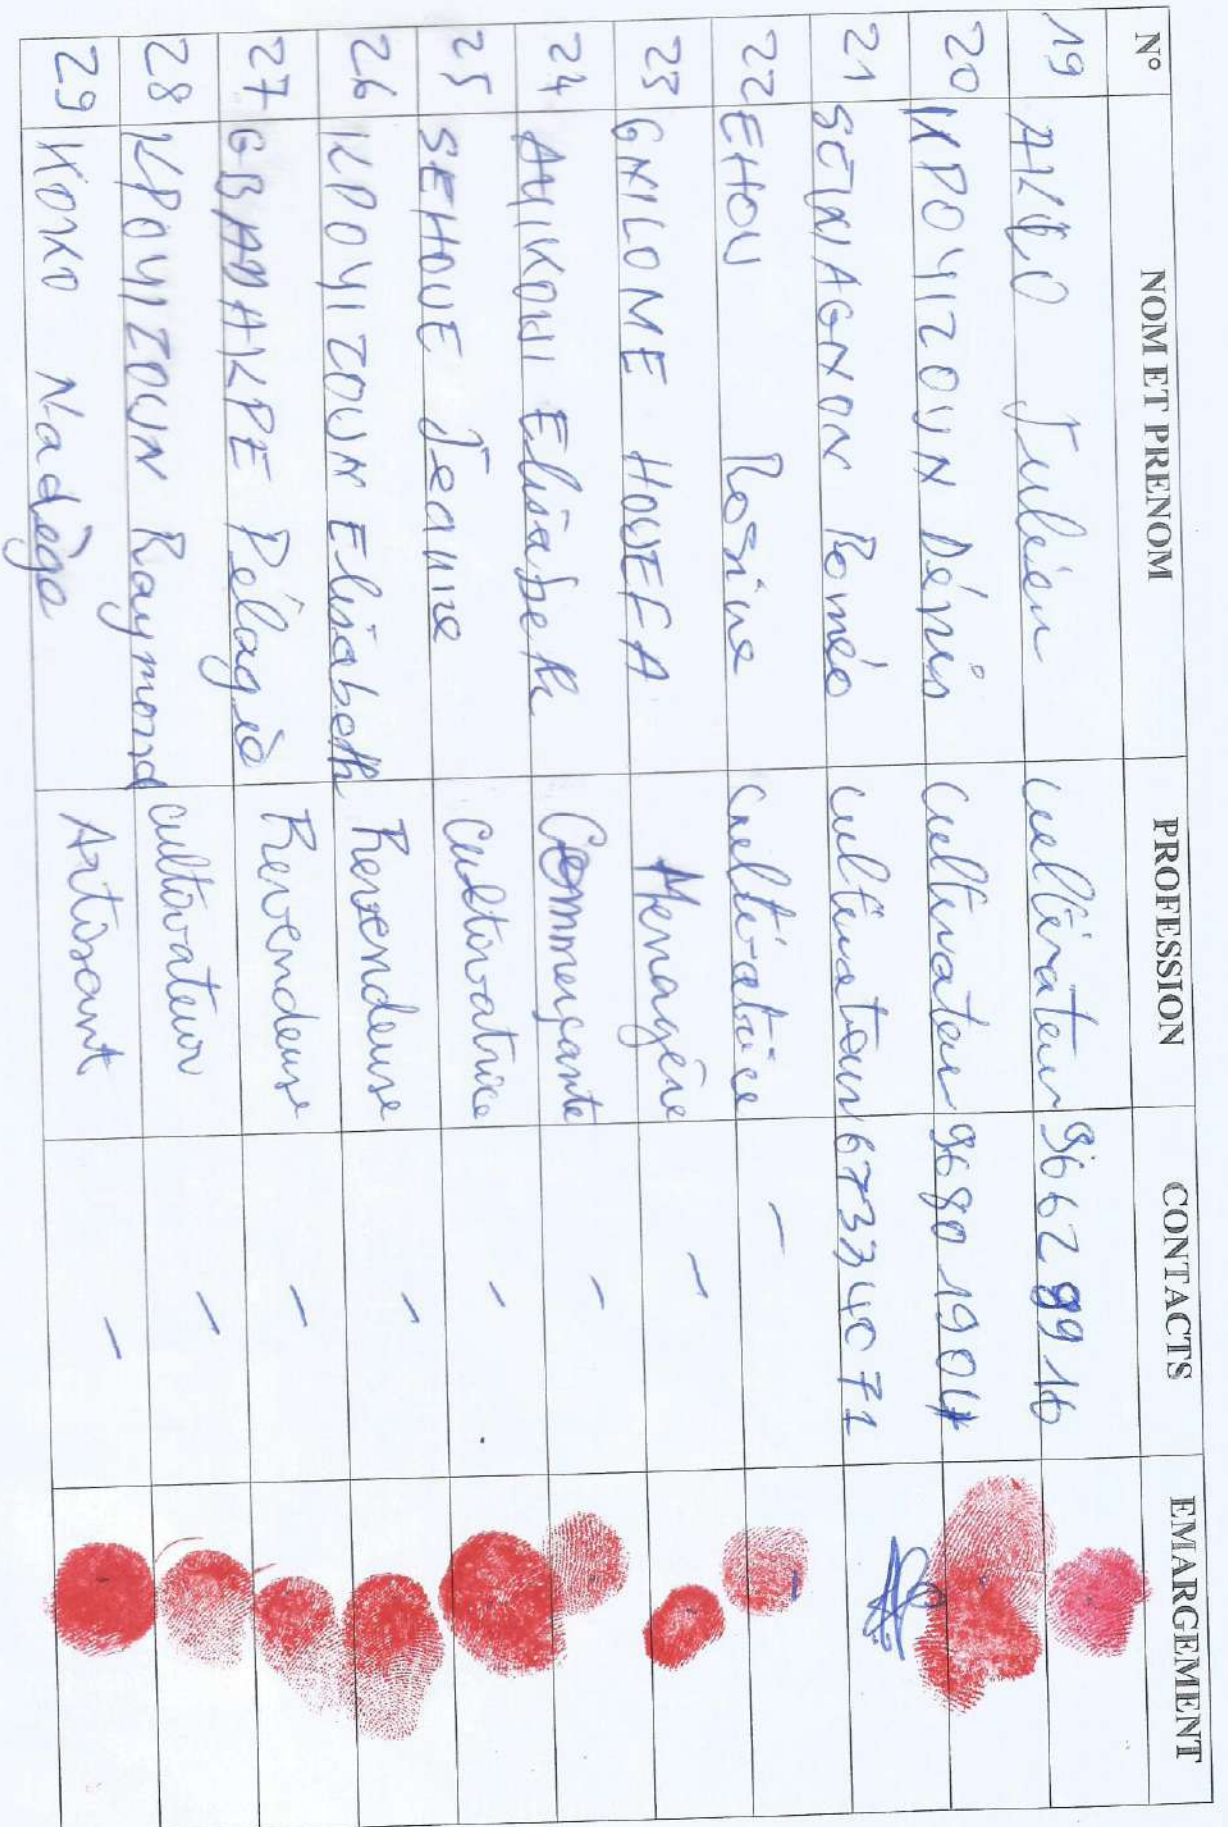 N° NOM ET PRENOM PROFESSION CONTACTS EMARGEMENT
19 AKLO Julien cultivateur 96628916
20 KPOYIZOUN Dénis cultivateur 96801904
21 SEWAGNON Roméo cultivateur 67334071
22 EHOU Rosine cultivatrice -
23 GNILOME HOUEFA Menagère -
24 AHIKOUI Elisabeth Commerçante -
25 SEHOUE Jeanne Cultivatrice -
26 KPOYIZOUN Elisabeth Revendeuse -
27 GBADAKPE Pélagie Revendeuse -
28 KPOYIZOUN Raymond cultivateur -
29 KOKO Nadège Artisant -